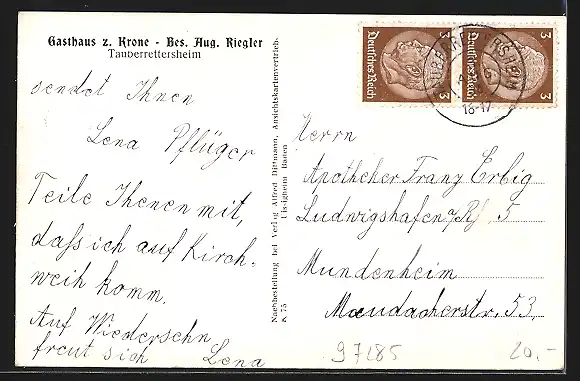 Gasthaus z. Krone - Bes. Aug. Riegler
Tauberrettersheim
sendet Ihnen
Lena Pflüger
Teile Ihenen mit,
daß ich auf Kirch-
weih komm.
Auf Wiedersehn
freut sich Lena
Nachbestellung bei Verlag Alfred Dittmann, Ansichtskartenvertrieb,
Uissigheim Baden
S 75
3 Deutsches Reich
3 Deutsches Reich
TAUBERRETTERSHEIM
18-17
Herrn
Apotheker Franz Erbig
Ludwigshafen a/Rh 5
Mundenheim
Maudacherstr. 53.
97285
20.-